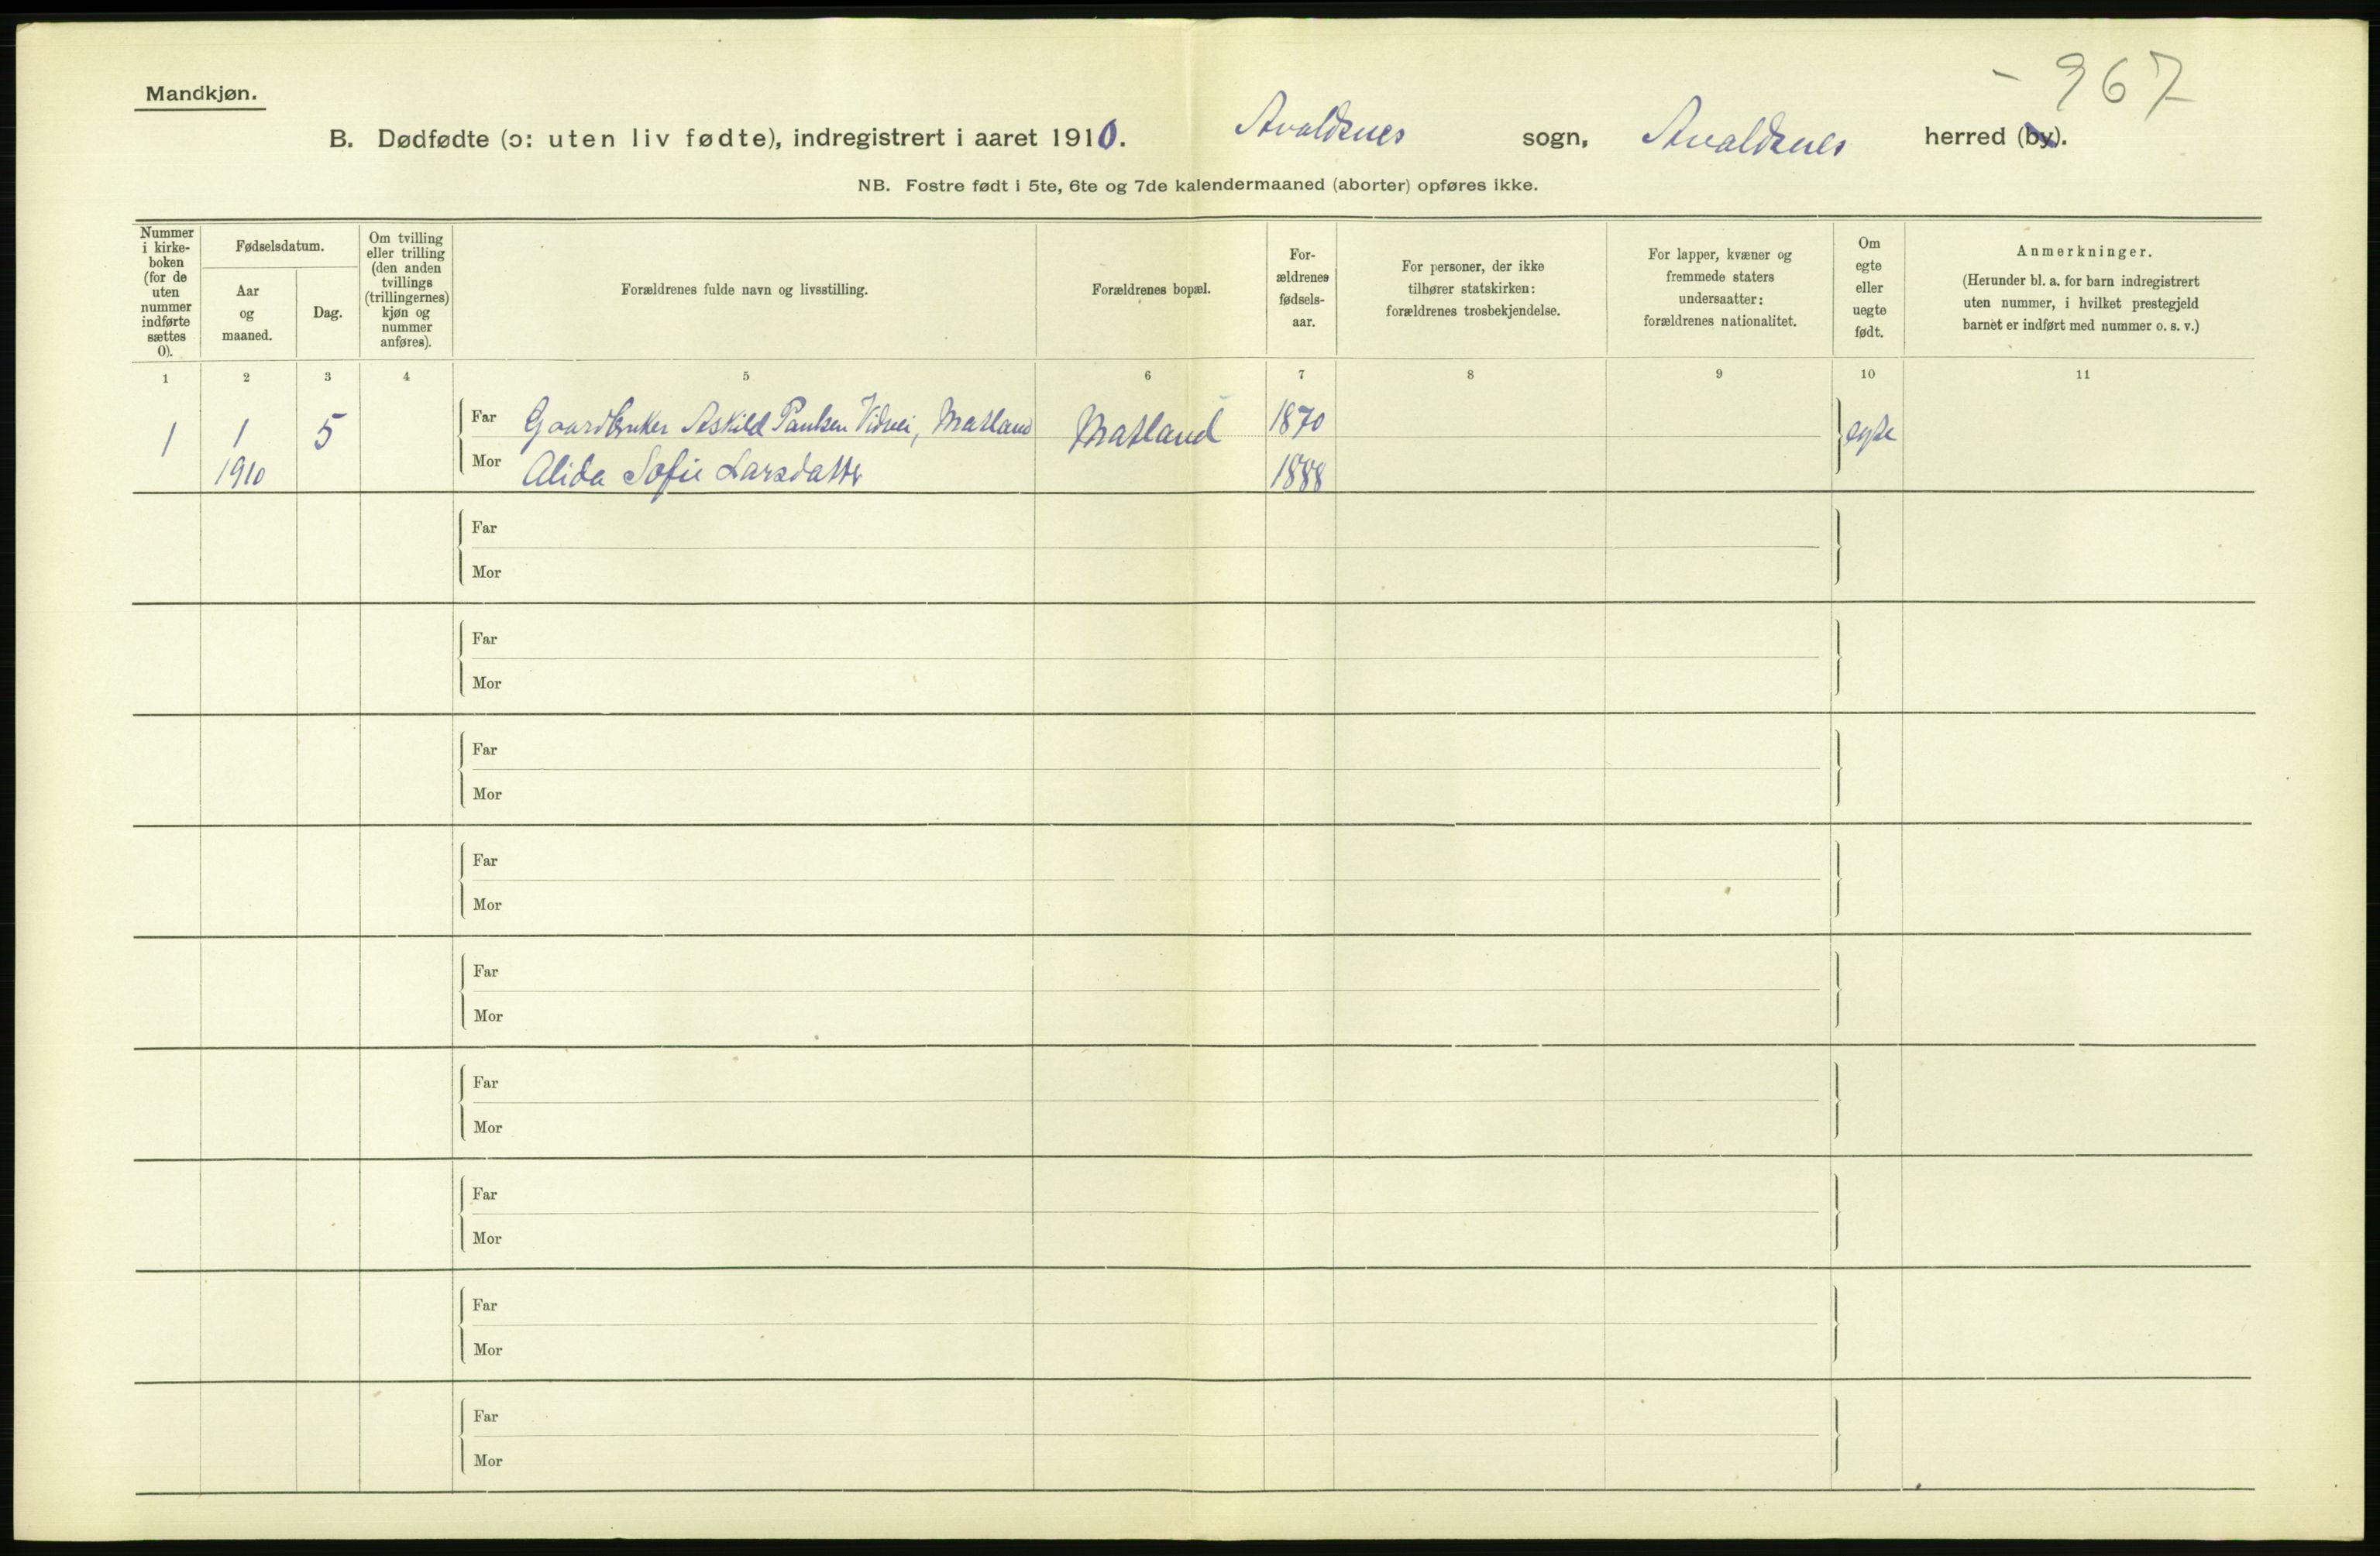 - 967
Mandkjøn.
B. Dødfødte (ɔ: uten liv fødte), indregistrert i aaret 1910. Avaldsnes sogn, Avaldsnes herred (by).
NB. Fostre født i 5te, 6te og 7de kalendermaaned (aborter) opføres ikke.
Nummer
i kirke-
boken
(for de
uten
nummer
indførte
sættes
0).
Fødselsdatum.
Aar
og
maaned.
Dag.
Om tvilling
eller trilling
(den anden
tvillings
(trillingernes)
kjøn og
nummer
anføres).
Forældrenes fulde navn og livsstilling.
Forældrenes bopæl.
For-
ældrenes
fødsels-
aar.
For personer, der ikke
tilhører statskirken:
forældrenes trosbekjendelse.
For lapper, kvæner og
fremmede staters
undersaatter:
forældrenes nationalitet.
Om
egte
eller
uegte
født.
Anmerkninger.
(Herunder bl. a. for barn indregistrert
uten nummer, i hvilket prestegjeld
barnet er indført med nummer o. s. v.)
1 2 3 4 5 6 7 8 9 10 11
1 1 5 Far Gaardbruker Askild Paulsen Matland Matland 1870 egte
1910 Mor Alida Sofie Larsdatter 1888
Far
Mor
Far
Mor
Far
Mor
Far
Mor
Far
Mor
Far
Mor
Far
Mor
Far
Mor
Far
Mor